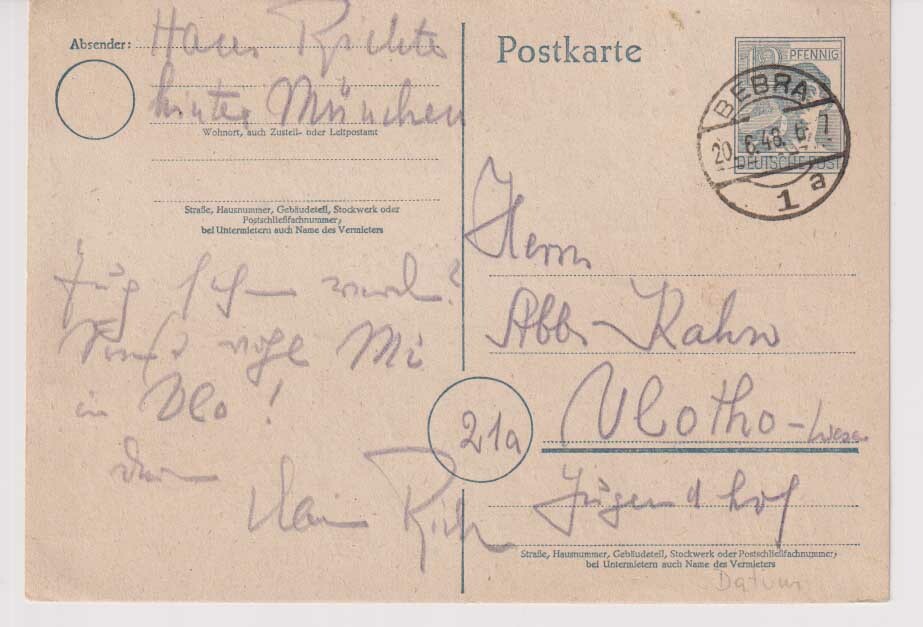 Absender: Hans Richter
hinter München
Wohnort, auch Zustell- oder Leitpostamt
Straße, Hausnummer, Gebäudeteil, Stockwerk oder
Postschließfachnummer,
bei Untermietern auch Name des Vermieters
Postkarte
12 PFENNIG
DEUTSCHE POST
BEBRA
20.6.48.6-7
1 a
Herrn
Kahn
21a
Vlotho-Weser
Jugendhof
Straße, Hausnummer, Gebäudeteil, Stockwerk oder Postschließfachnummer,
bei Untermietern auch Name des Vermieters
Datum
wohl Mi
in Vlo!